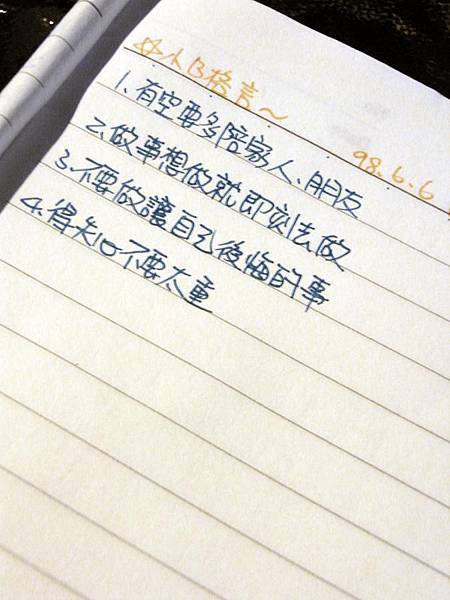 ☆小B格言～
98.6.6
1.有空要多陪家人、朋友
2.做事想做就即刻去做
3.不要做讓自己後悔的事
4.得失心不要太重